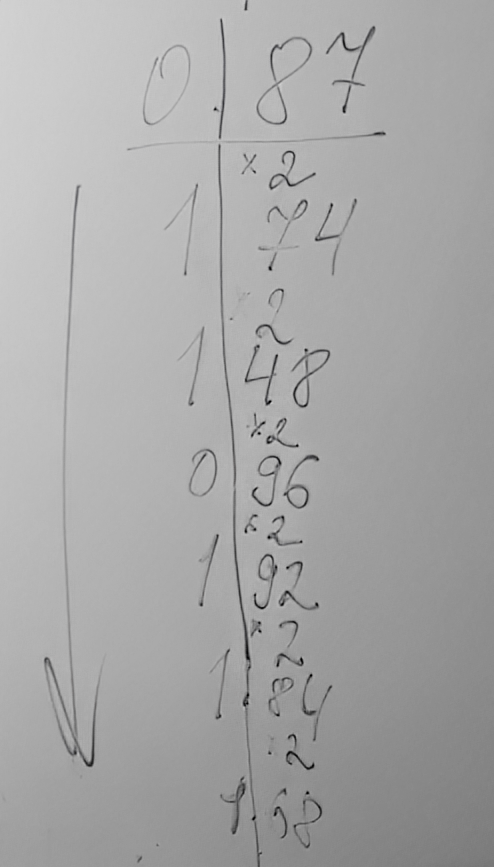 0. 87
×2
1 74
×2
1 48
×2
0 96
×2
1 92
×2
1. 84
·2
1. 58